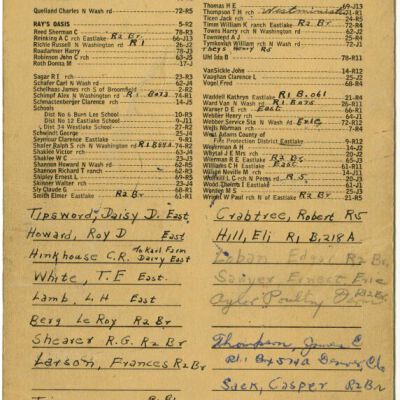 Quelland Charles N Wash rd 72-R5
RAY'S OASIS 5-R2
Reed Sherman C 78-R3
Reinking A C J Eastlake R2 Br. 66-J13
Richie Russell N Washington rd R1 26-J2
Roadarmer Harry 78-J3
Robinson John C rch 63-J5
Roth Donna M 17-J
Sagar R T rch 23-J5
Schafer Carl N Wash rd 62-J
Schelhaas James S of Broomfield 2-R2
Schimpf Alex N Washington rd R1 Bx73 74-R1
Schmactenberger Clarence rch 14-J5
Schools
Dist No 6 Burn Lee School 10-R3
Dist No 12 Eastlake School 9-J11
Dist 34 Westlake School 27-R2
Schwisint George 25-J
Seymour Clarence Eastlake 9-R1
Shafer Ralph S rch N Washington
Shaklee Victor rch 63-J4
Shaklee W C 23-J3
Shannon Howard N Wash rd 65-R1
Shannon Richard T ranch 62-R3
Shipley Ernest L 69-R5
Skinner Walter rch 23-J4
Sly Claude G 68-R1
Smith Elmer Eastlake R2 Br 21-R5
Tipsword, Daisy D. East.
Howard, Roy D East
Hinkhouse C.R. Dairy East
To Karl Farm
White, T.E East.
Lamb, L.H East
Berg Le Roy R2 Br
Shearer R.G. R2 Br
Larson, Frances R2 Br
Thomas H E 69-J13
Thompson T H rch Westminister 69-R1
Ticen Jack rch 24-R5
Timm William K ranch Eastlake R2 Br. 72-R4
Towns Harry rch N Washington 62-J2
Townsend A J 45-R1
Tymkovish William rch N Wash rd 72-J1
Uhl Ida B 78-R11
VanSickle John 14-R2
Vaughan Clarence L 25-J2
Vogel Fred 68-R4
Waddell Kathryn Eastlake R1 B.061 21-R4
Ward Van N Wash rd R1 Bx75 26-R11
Warner D E rch East 66-R5
Webber Henry rch 64-J1
Webber Service Sta N Wash rd Erie 72-J2
Wells Norman rch 7-R4
West Adams County of
Fire Protection District Eastlake 9-R2
14-J2
Whytal J E Mrs 20-J2
Wierman R E Eastlake R2 Br 63-J3
Williams C H Eastlake East 9-R11
Wilson Neville M rch 14-J1
L C rch N Petts rd R.5 20-J3
Wood Dwight I Eastlake 21-J2
S 25-J3
Wright W Paul rch N of Eastlake R2 Br 21-R5
Crabtree, Robert R5
Hill, Eli R1 B.218A
Urban Edgar R2 Br.
Sawyer Ernest Erie
R2 Br.
Thompson, James E
Rt.1 Denver, Clo
Suek, Casper R2 Br